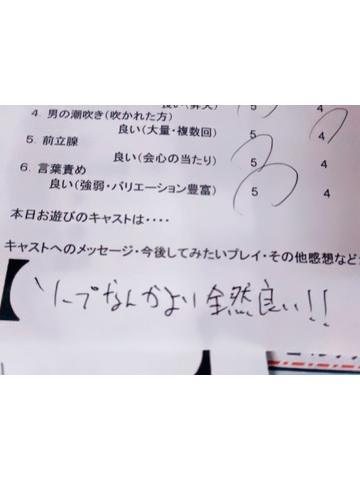 4. 男の潮吹き(吹かれた方)
良い(大量・複数回) 5 4
5. 前立腺
良い(会心の当たり) 5 4
6. 言葉責め
良い(強弱・バリエーション豊富) 5 4
本日お遊びのキャストは・・・・
キャストへのメッセージ・今後してみたいプレイ・その他感想など
【ソープなんかより全然良い!!